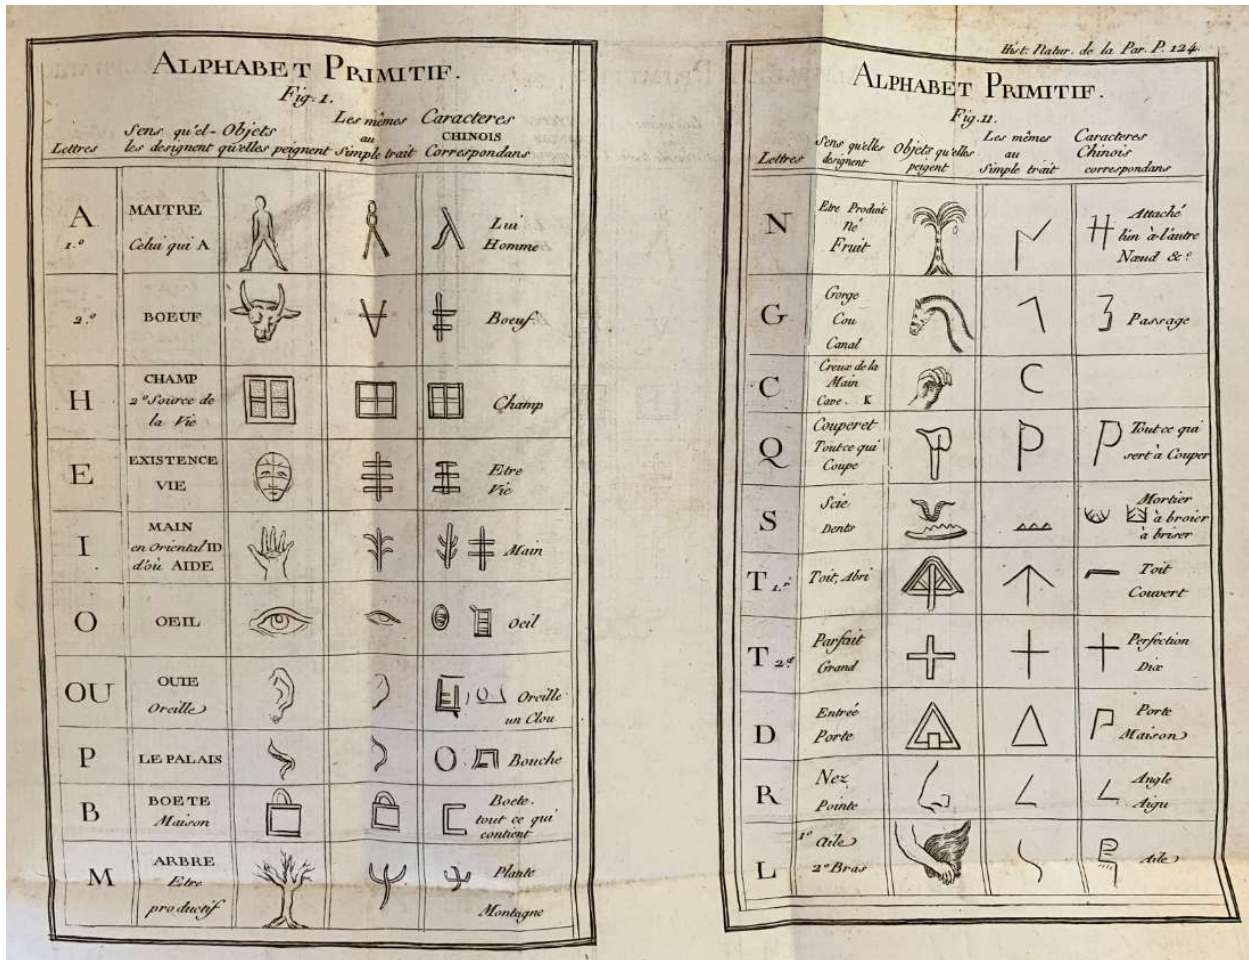 ALPHABET PRIMITIF.
Fig. 1.
Lettres
Sens qu'el-
les designent
Objets
qu'elles peignent
Les mêmes
au
Simple trait
Caracteres
CHINOIS
Correspondans
A
1.º
MAITRE
Celui qui A
Lui
Homme
2.º
BOEUF
Boeuf
H
CHAMP
2º Source de
la Vie
Champ
E
EXISTENCE
VIE
Etre
Vie
I
MAIN
en Oriental ID
d'où AIDE
Main
O
OEIL
Oeil
OU
OUIE
Oreille
Oreille
un Clou
P
LE PALAIS
Bouche
B
BOETE
Maison
Boete.
tout ce qui
contient
M
ARBRE
Etre
productif
Plante
Montagne
Hist. Natur. de la Par. P. 124.
ALPHABET PRIMITIF.
Fig. 11.
Lettres
Sens qu'elles
designent
Objets qu'elles
peigent
Les mêmes
au
Simple trait
Caracteres
Chinois
correspondans
N
Etre Produit
Né
Fruit
Attaché
l'un à l'autre
Nœud &c
G
Gorge
Cou
Canal
Passage
C
Creux de la
Main
Cave. K
Q
Couperet
Tout ce qui
Coupe
Tout ce qui
sert à Couper
S
Scie
Dents
Mortier
à broier
à briser
T 1.r
Toit, Abri
Toit
Couvert
T 2.d
Parfait
Grand
Perfection
Dix
D
Entrée
Porte
Porte
Maison
R
Nez
Pointe
Angle
Aigu
L
1º Aile
2º Bras
Aile